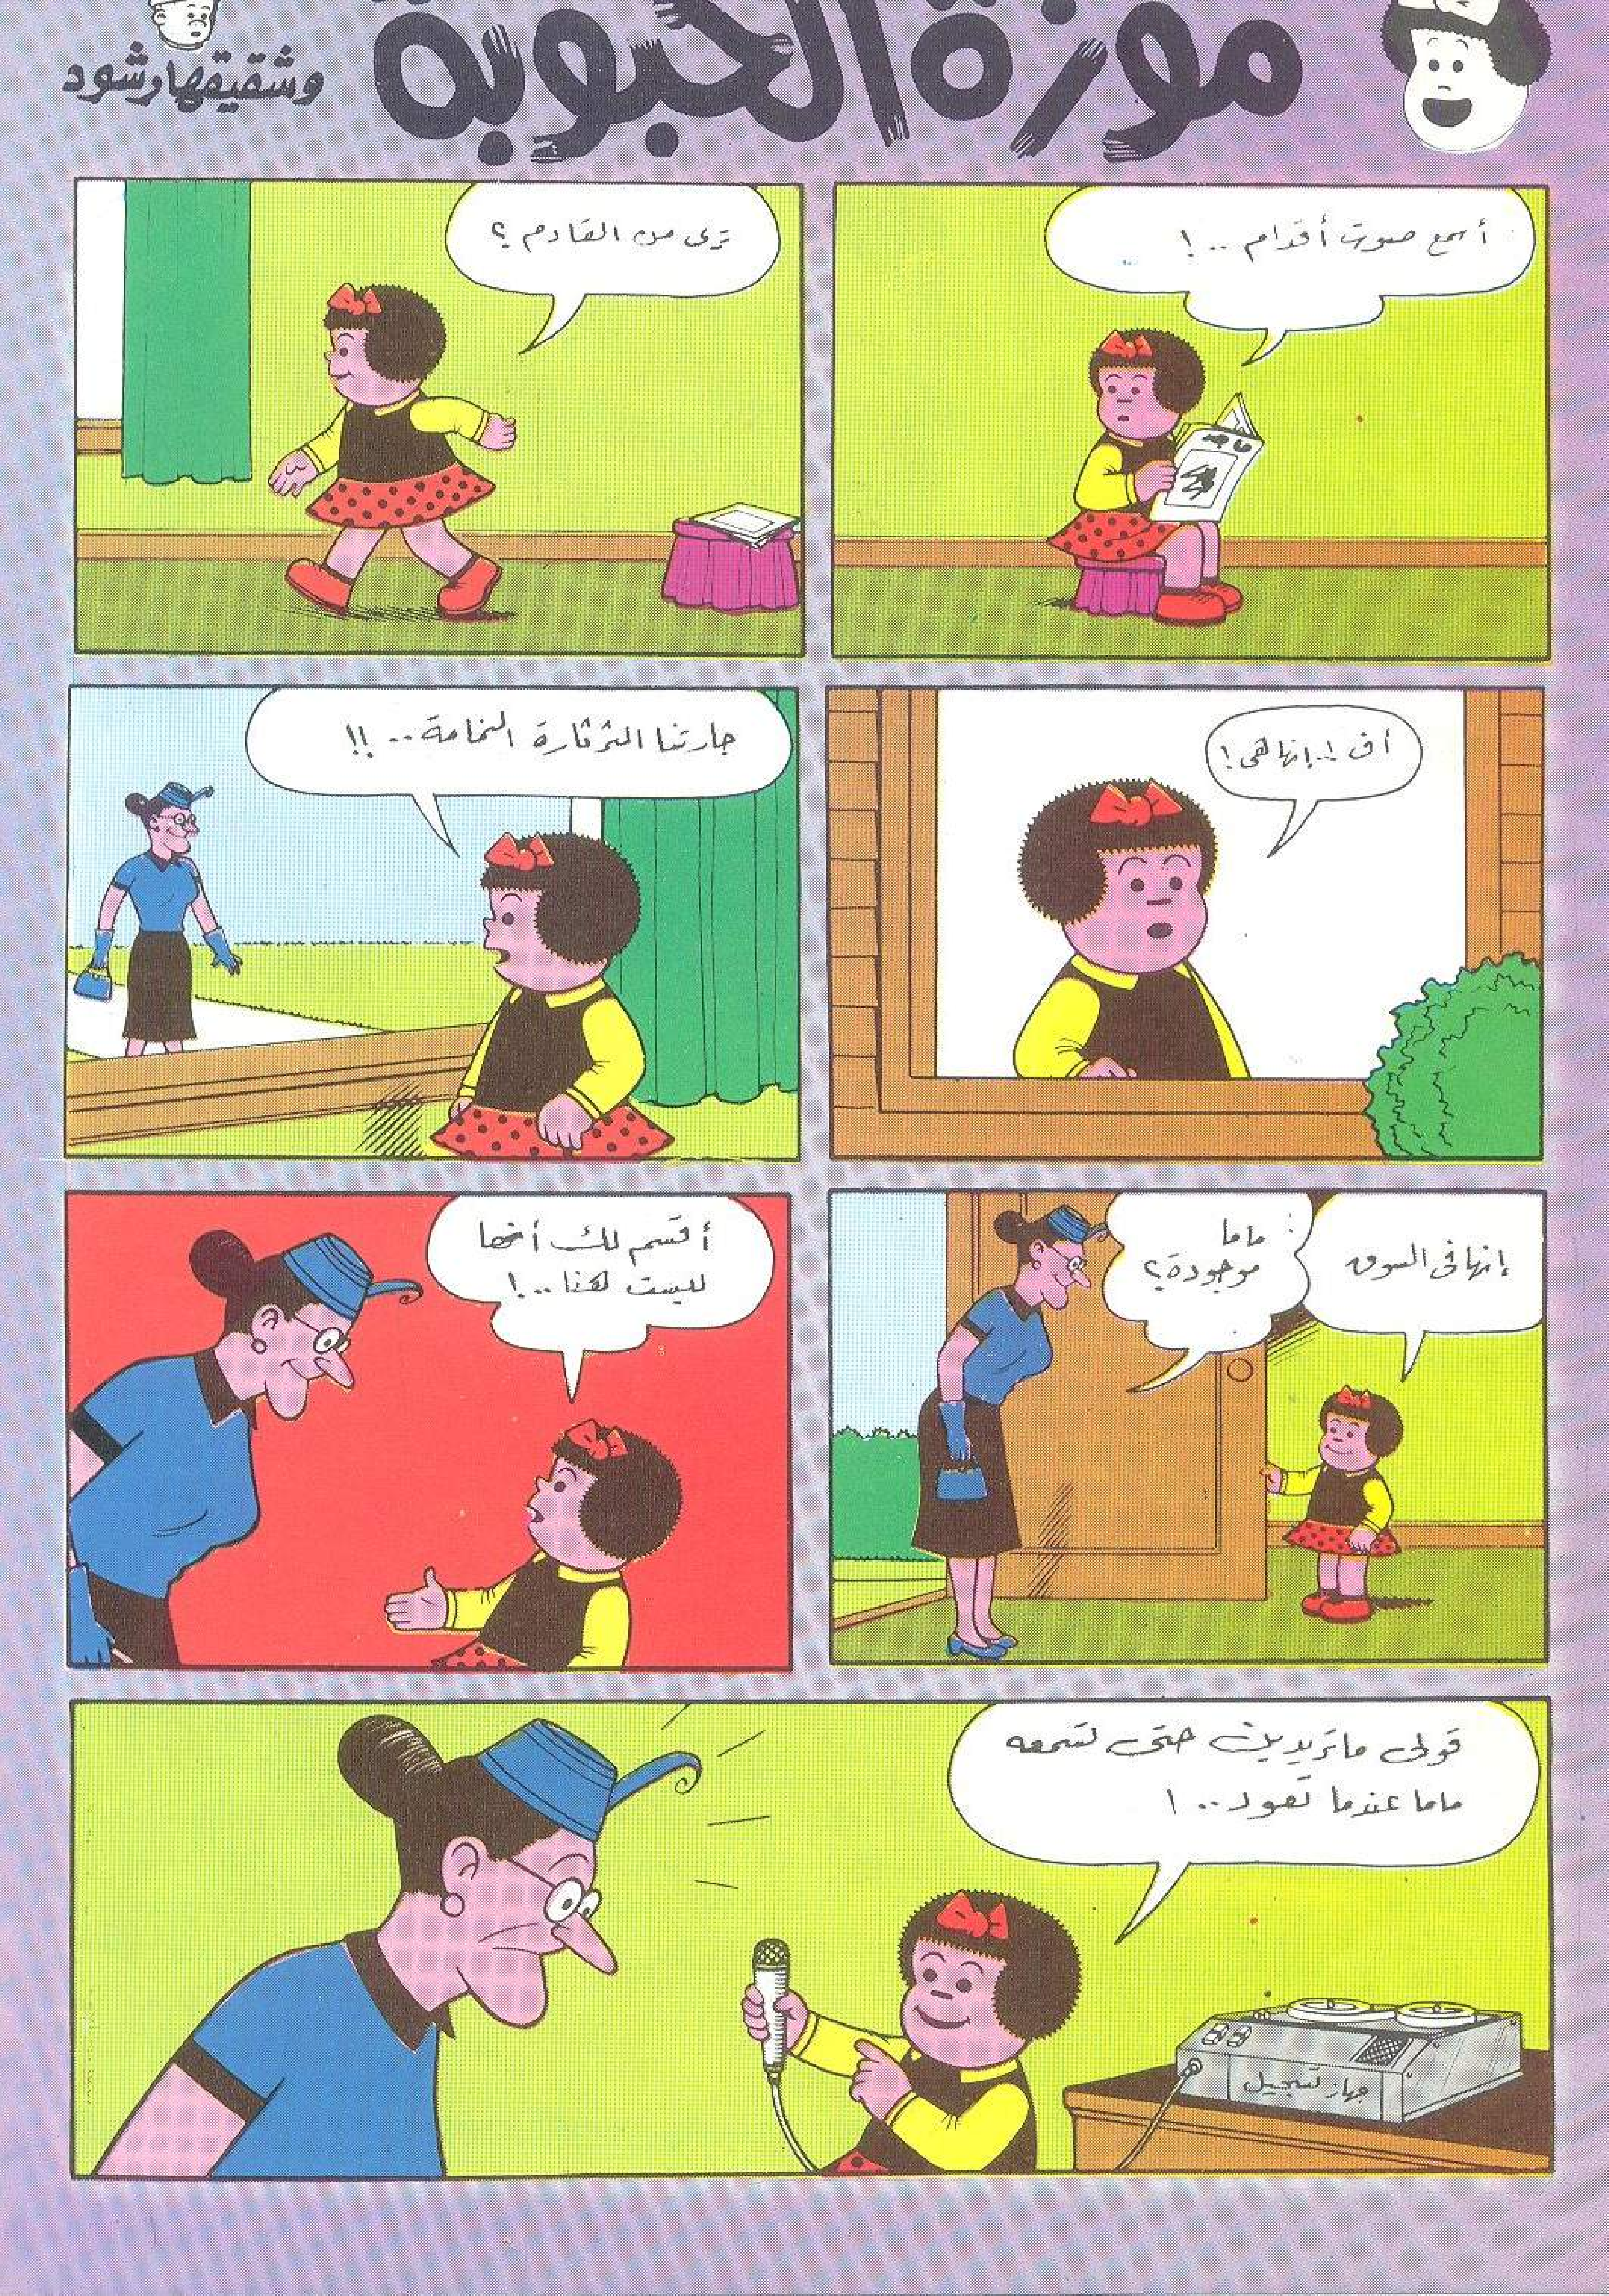 موزة الحبوبة
وشقيقها رشود
أسمع صوت أقدام ..!
ترى من القادم ؟
أف !.. إنها هى !
جارتنا الثرثارة النمامة .. !!
ماما
موجودة ؟
إنها فى السوق
أقسم لك أنها
ليست هنا ..!
قولى ما تريدين حتى تسمعه
ماما عندما تعود .. !
جهاز تسجيل